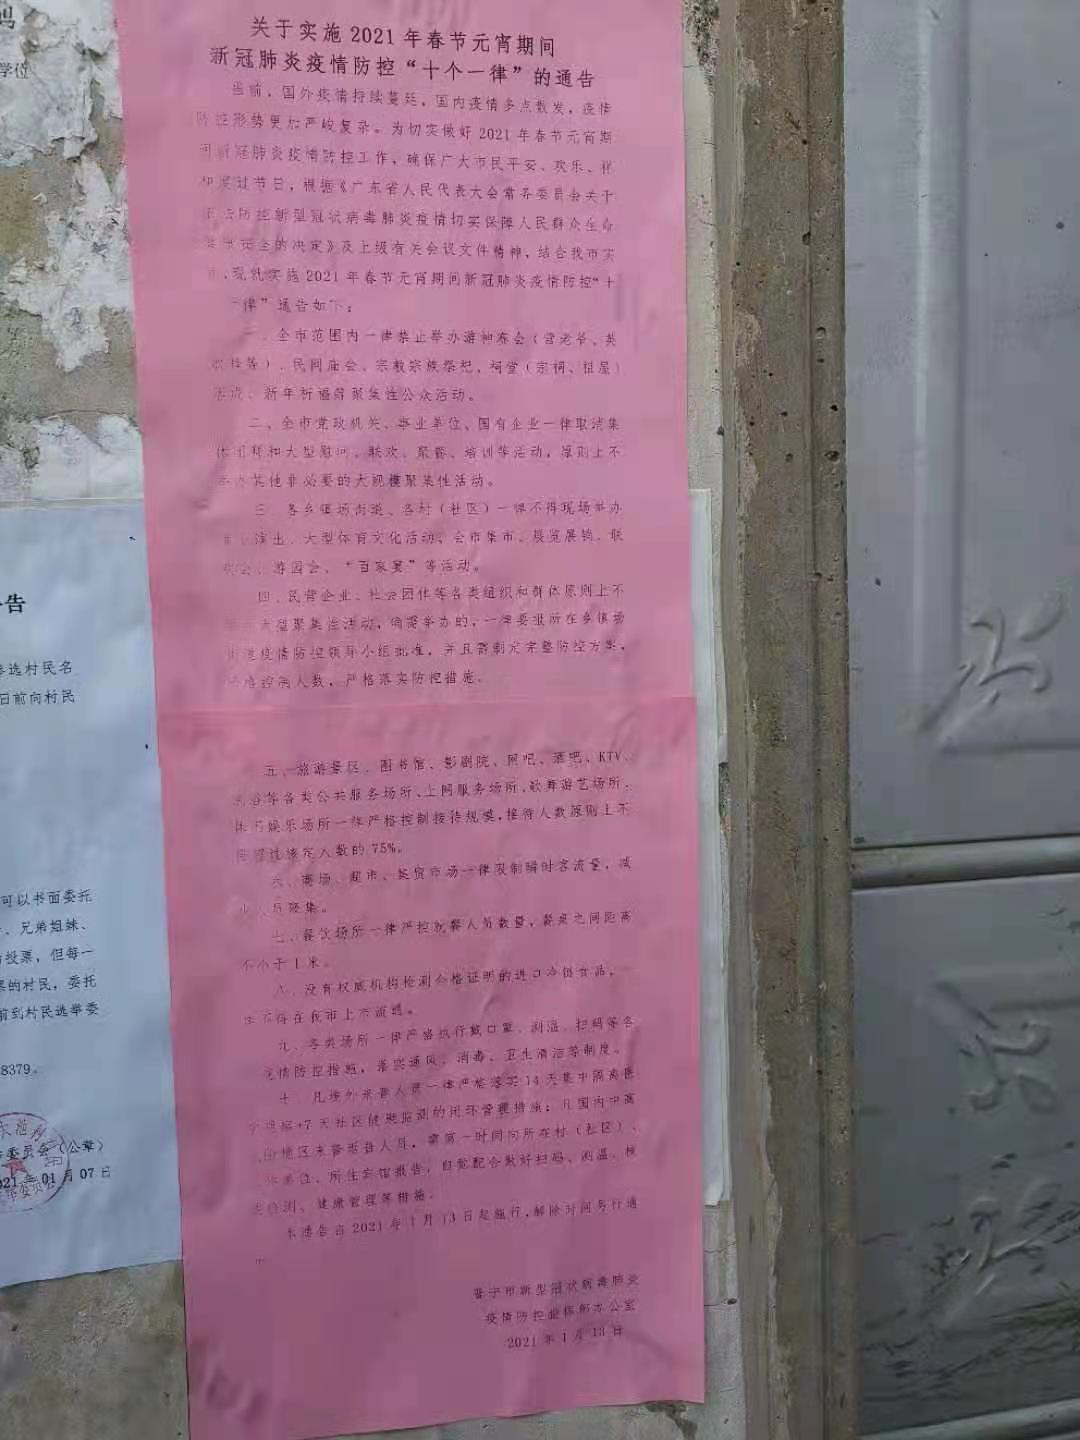 关于实施2021年春节元宵期间
新冠肺炎疫情防控“十个一律”的通告
当前，国外疫情持续蔓延，国内疫情多点散发，疫情
防控形势更加严峻复杂。为切实做好2021年春节元宵期
间新冠肺炎疫情防控工作，确保广大市民平安、欢乐、祥
和度过节日，根据《广东省人民代表大会常务委员会关于
防控新型冠状病毒肺炎疫情切实保障人民群众生命
安全的决定》及上级有关会议文件精神，结合我市实
，现就实施2021年春节元宵期间新冠肺炎疫情防控“十
一律”通告如下：
一、全市范围内一律禁止举办游神赛会（营老爷、英
等）、民间庙会、宗教宗族祭祀、祠堂（宗祠、祖屋）
、新年祈福等聚集性公众活动。
二、全市党政机关、事业单位、国有企业一律取消集
体团拜和大型慰问、联欢、聚餐、培训等活动，原则上不
其他非必要的大规模聚集性活动。
三、各乡镇场街道、各村（社区）一律不得现场举办
演出、大型体育文化活动、会市集市、展览展销、联
欢会、游园会、“百家宴”等活动。
四、民营企业、社会团体等各类组织和群体原则上不
大型聚集性活动，确需举办的，一律要报所在乡镇场
街道疫情防控领导小组批准，并且需制定完整防控方案，
严格控制人数，严格落实防控措施。
五、旅游景区、图书馆、影剧院、网吧、酒吧、KTV、
等各类公共服务场所、上网服务场所、歌舞游艺场所、
休闲娱乐场所一律严格控制接待规模，接待人数原则上不
得超过核定人数的75%。
六、商场、超市、农贸市场一律限制瞬时客流量，减
少人员聚集。
七、餐饮场所一律严控就餐人员数量，餐桌之间距离
不小于1米。
八、没有权威机构检测合格证明的进口冷链食品，一
律不得在我市上市流通。
九、各类场所一律严格执行戴口罩、测温、扫码等各
疫情防控措施，落实通风、消毒、卫生清洁等制度。
十、凡境外来普人员一律严格落实14天集中隔离医
+7天社区健康监测的闭环管理措施；凡国内中高
风险地区来普返普人员，需第一时间向所在村（社区）、
单位、所住宾馆报告，自觉配合做好扫码、测温、核
酸检测、健康管理等措施。
本通告自2021年1月13日起施行，解除时间另行通
普宁市新型冠状病毒肺炎
疫情防控指挥部办公室
2021年1月13日
告
选村民名
日前向村民
可以书面委托
、兄弟姐妹、
投票，但每一
的村民，委托
前到村民选举委
8379。
委员会（公章）
2021年01月07日
学位